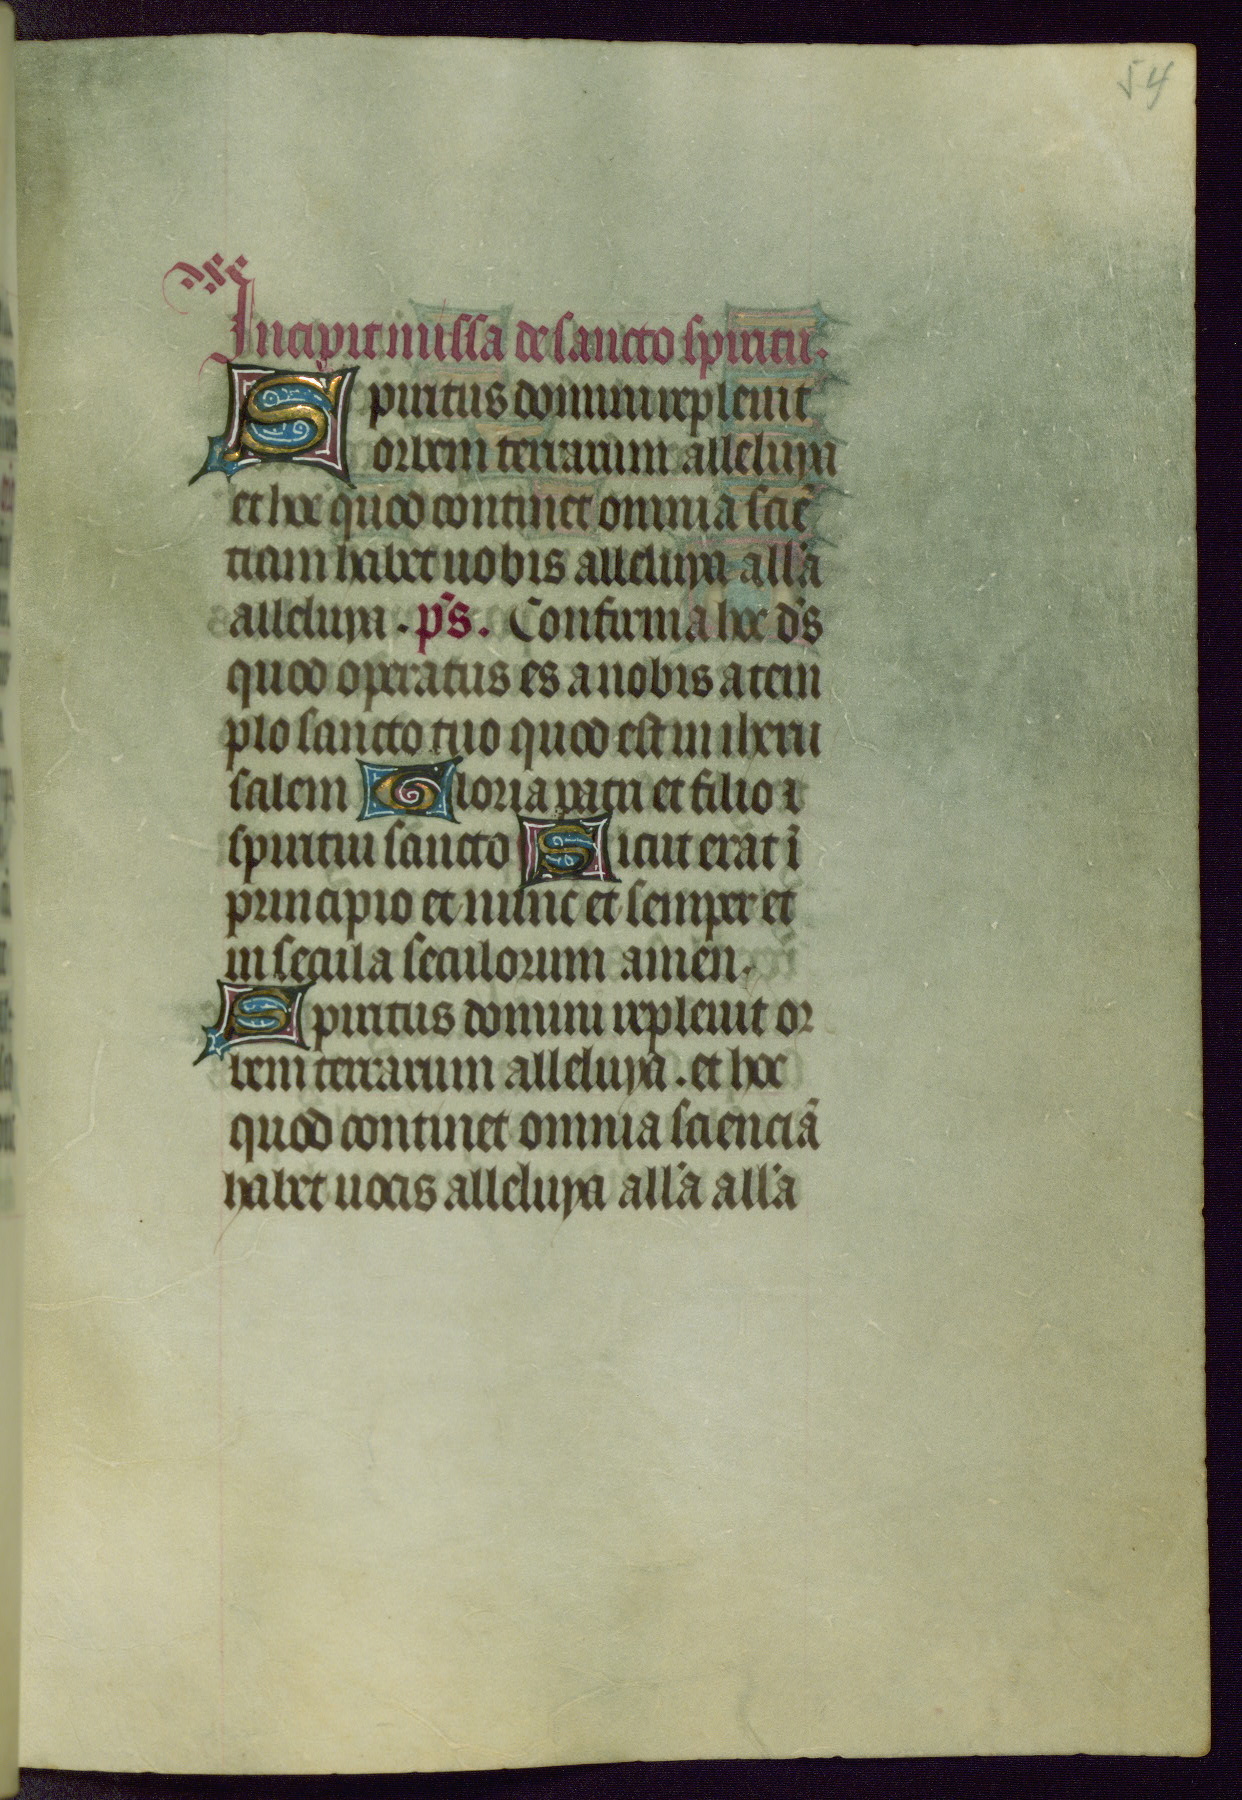 54
Incipit missa de sancto spiritu.
Spiritus domini repleuit
orbem terrarum alleluya
et hoc quod continet omnia sciē
tiam habet uobis alleluya all'a
alleluya. p̄s. Confirma hoc d̄s
quod operatus es a nobis a tem
plo sancto tuo quod est in iheru
salem Gloria patri et filio ⁊
spiritui sancto Sicut erat ī
principio et nunc et semper et
in secula seculorum amen.
Spiritus domini repleuit or
bem terrarum alleluya. et hoc
quod continet omnia scienciā
habet uocis alleluya all'a all'a